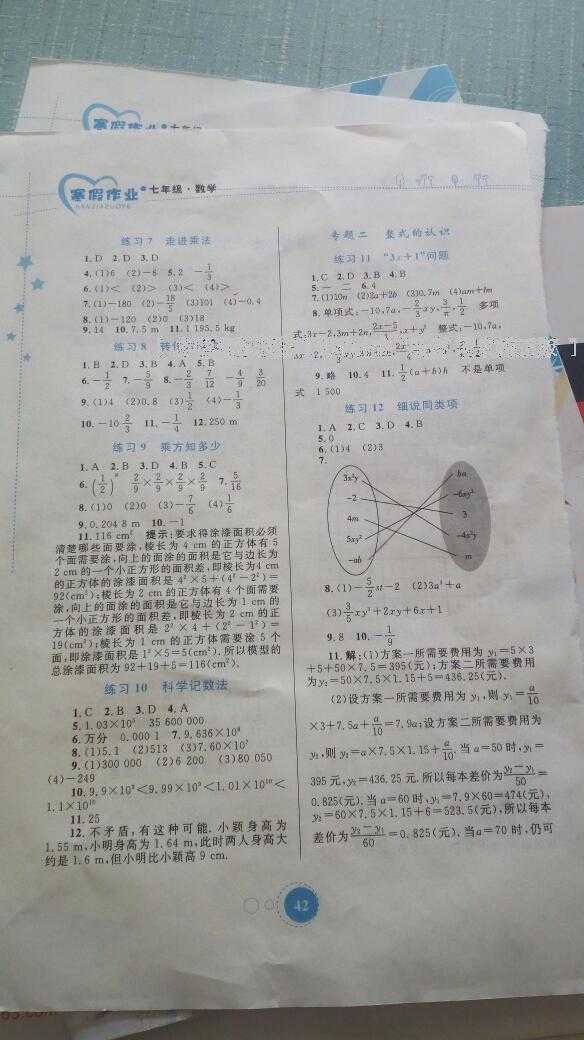 寒假作业
寒假作业•七年级·数学
HANJIAZUOYE
练习7 走进乘法
1.D 2.D 3.D
4.(1)6 (2)-6 5.2 -1/3
6.(1)< (2)> (3)< (4)>
7.(1)-180 (2)-18/5 (3)101 (4)-0.4
8.(1)-120 (2)0 (3)18
9.14 10.7.5 m 11.1 195.5 kg
练习8
1.B 2.D 3.B 4.A 5.B
6.-1/2 7.-5/9 8.-2/3 7/12 -4/9 3/20
9.(1)4 (2)0.8 (3)1/2 (4)-1/3
10.-10 2/3 11.-1/4 12.250 m
练习9 乘方知多少
1.A 2.B 3.D 4.B 5.C
6.(1/2) 2/9×2/9×2/9×2/9 7.5/16
8.(1)0 (2)0 (3)-7/6 (4)1/6
9.0.204 8 m 10.-1
11.116 cm² 提示:要求得涂漆面积必须
清楚哪些面要涂,棱长为 4 cm 的正方体有 5
个面需要涂,向上的面涂的面积是它与边长为
2 cm 的一个小正方形的面积差,即棱长为4 cm
的正方体的涂漆面积是 4²×5+(4²-2²)=
92(cm²);棱长为 2 cm 的正方体有 4 个面需要
涂,向上的面涂的面积是它与边长为 1 cm 的
一个小正方形的面积差,即棱长为 2 cm 的正
方体的涂漆面积是 2²×4+(2²-1²)=
19(cm²);棱长为 1 cm 的正方体需要涂 5 个
面,即涂漆面积是 1²×5=5(cm²).所以模型的
总涂漆面积为 92+19+5=116(cm²).
练习10 科学记数法
1.C 2.B 3.D 4.A
5.1.03×10⁵ 35 600 000
6.万分 0.000 1 7.9.636×10⁸
8.(1)5.1 (2)513 (3)7.60×10⁷
9.(1)300 000 (2)6 200 (3)80 050
(4)-249
10.9.9×10⁹<9.99×10⁹<1.01×10¹⁰<
1.1×10¹⁰
11.25
12.不矛盾,有这种可能.小颖身高为
1.55 m,小明身高为 1.64 m,此时两人身高大
约是 1.6 m,但小明比小颖高 9 cm.
专题二 整式的认识
练习11 “3x+1”问题
1.C 2.D 3.B 4.B
5.一 二 6.4
7.(1)10n (2)2a+2b (3)0.7m (4)am+bm
8.单项式:-10,7a,-2/3xy,3/π,1/2 多项
式:3x-2,3m+2n,(2x-5)/,x+y² 整式:-10,7a,
3x-2,
9.略 10.4 11.1/2(a+b)h 不是单项
式 1 500
练习12 细说同类项
1.A 2.C 3.D 4.B
5.0
6.(1)4 (2)3
7.
3x²y
-2
4m
5xy²
-ab
ba
-6xy²
3
-4x²y
m
8.(1)-5/2st-2 (2)3a²+a
(3)3/5xy²+2xy+6x+1
9.8 10.-1/9
11.解:(1)方案一所需要费用为 y₁=5×3
+5+50×7.5=395(元);方案二所需要费用
为 y₂=50×7.5×1.15+5=436.25(元).
(2)设方案一所需要费用为 y₁,则 y₁=a/10
×3+7.5a+a/10=7.9a;设方案二所需要费用为
y₂,则 y₂=a×7.5×1.15+a/10.当 a=50 时,y₁=
395 元,y₂=436.25 元.所以每本差价为(y₂-y₁)/50=
0.825(元).当 a=60 时,y₁=7.9×60=474(元),
y₂=60×7.5×1.15+6=523.5(元),所以每本
差价为(y₂-y₁)/60=0.825(元).当 a=70 时,仍可
42